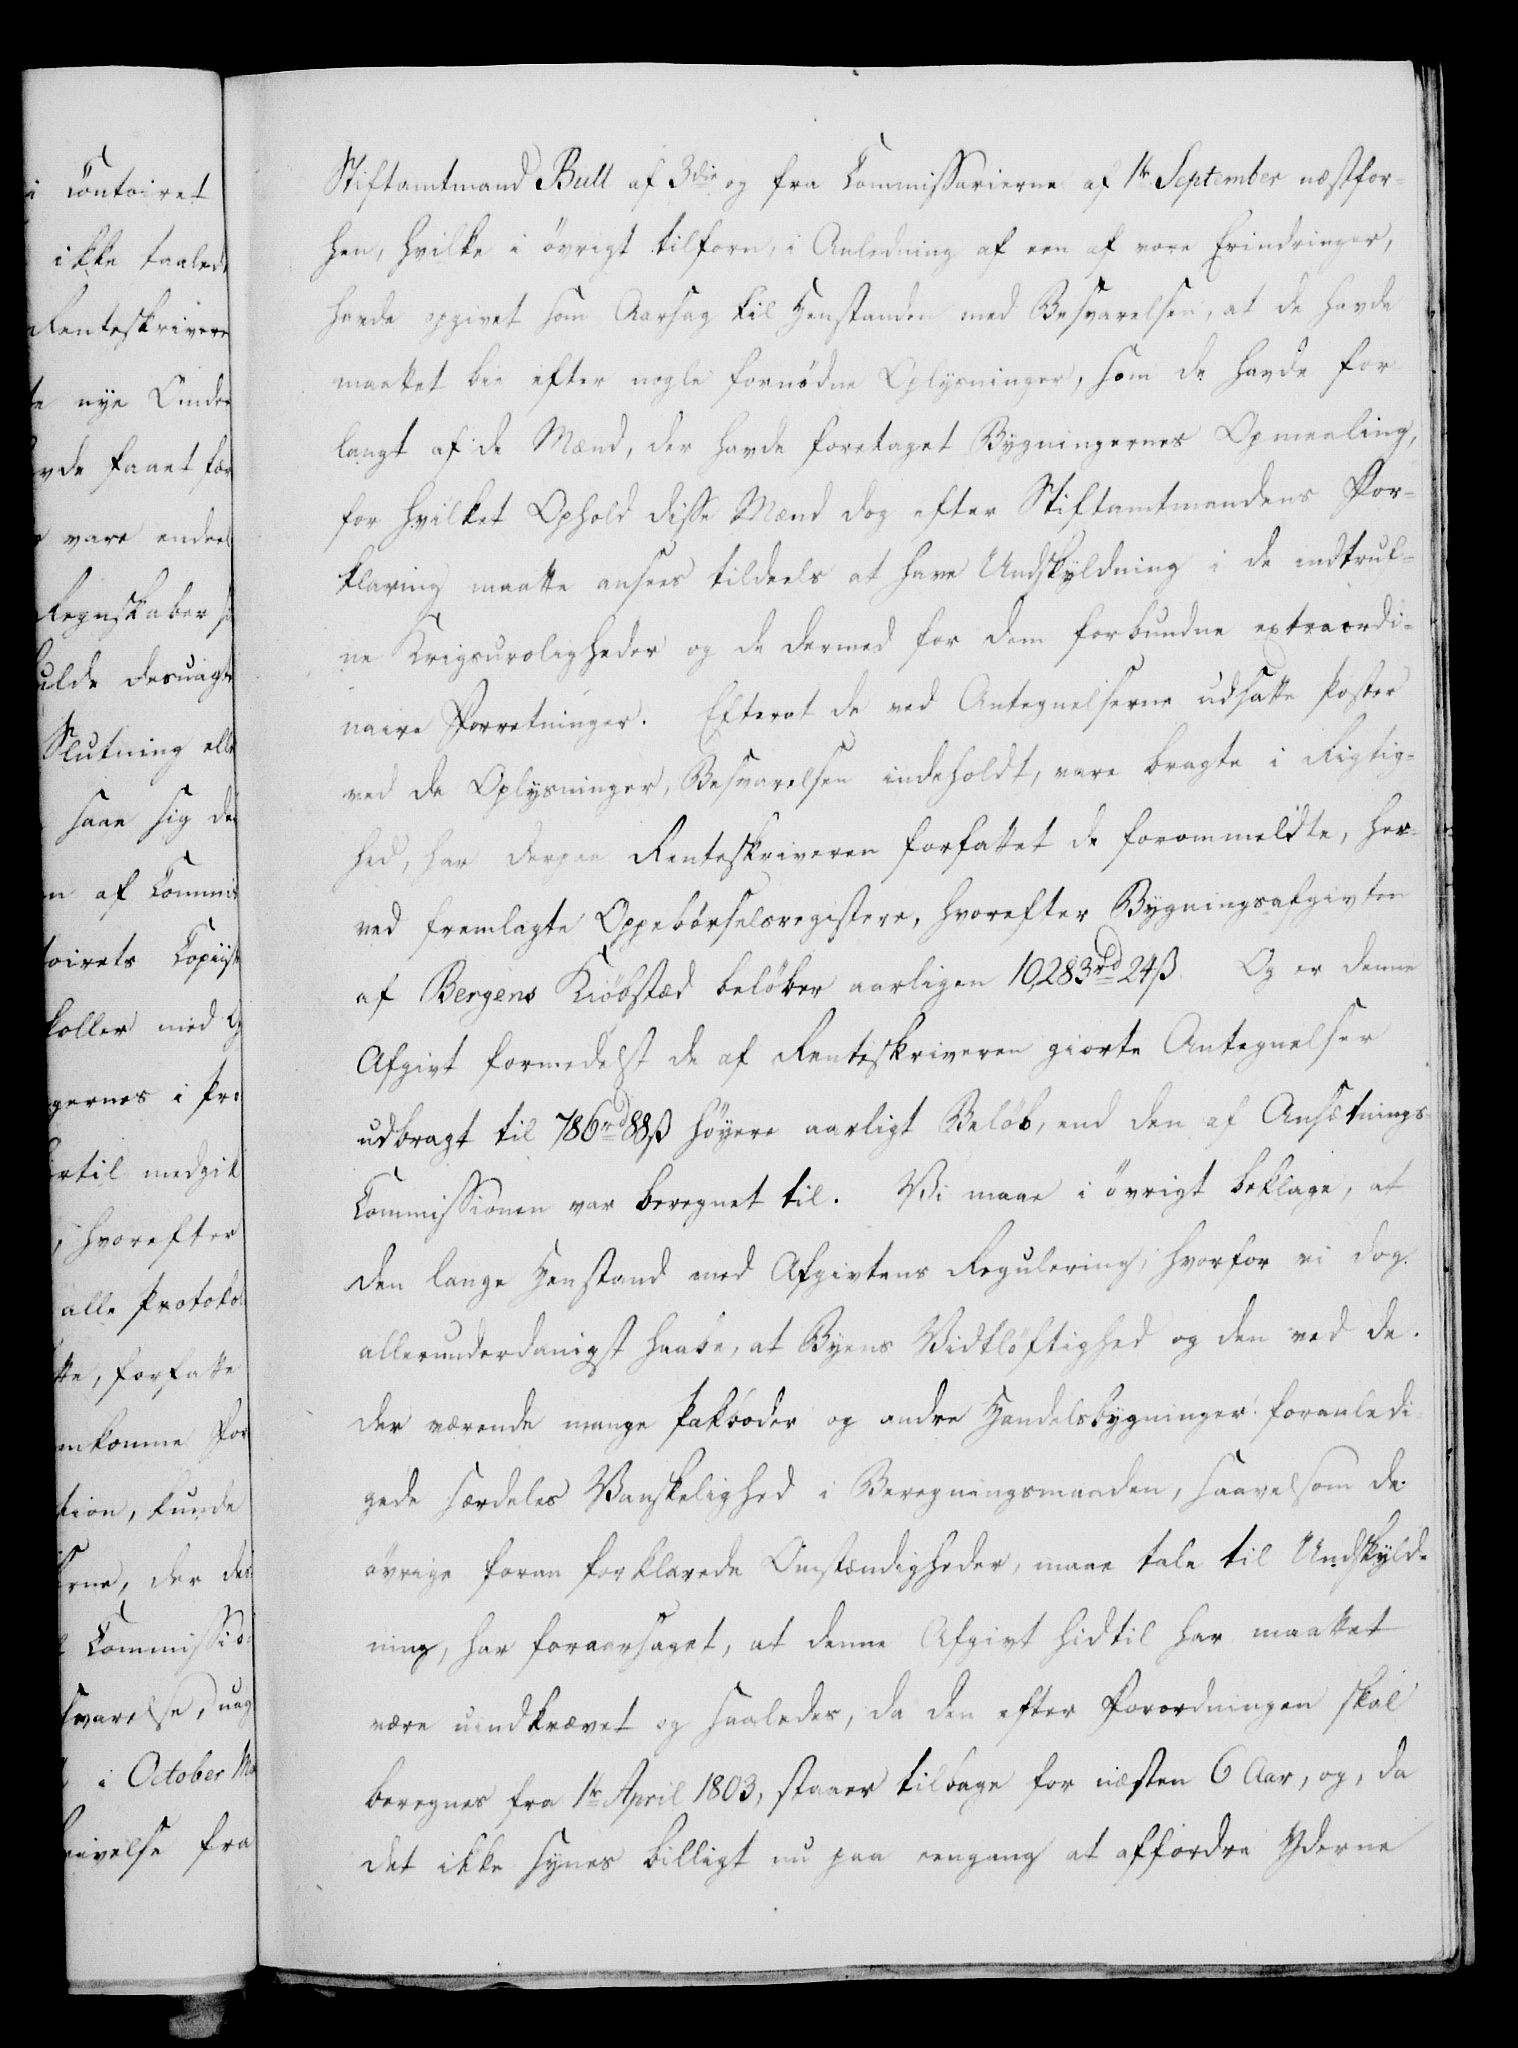 i Contoiret
ikke taaled
Renteskrivere
nye Under
vde faaet fær
vare endeel
Regnskaber
ulde desuagt
Slutning elle
saae sig
af Commis
toirets Copiist
koller med
gernes i Pro
ertil medgik
, hvorefter
alle Protokol
tte, forfatte
mkomne For
tion, kunde
erne, der des
Commissio-
svarelse, uag
i October
rivelse fra
Stiftamtmand Bull af 3die og fra Commissarierne af 1te September næstfor-
hen, hvilke i øvrigt tilforn, i Anledning af een af vore Erindringer,
havde opgivet som Aarsag til Henstanden med Besvarelsen, at de havde
maattet bie efter nogle fornødne Oplysninger, som de havde for-
langt af de Mænd, der havde foretaget Bygningernes Opmaaling,
for hvilket Ophold disse Mænd dog efter Stiftamtmandens For-
klaring maatte ansees tildeels at have Undskyldning i de indtruf-
ne Krigsuroligheder og de dermed for dem forbundne extraordi-
naire Forretninger. Efterat de ved Antegnelserne udsatte Poster
ved de Oplysninger, Besvarelsen indeholdt, vare bragte i Rigtig-
hed, har derpaa Renteskriveren forfattet de forommeldte, her-
ved fremlagte Oppebørselsregistere, hvorefter Bygningsafgivten
af Bergens Kiøbstæd beløber aarligen 10,283rd 24ß Og er denne
Afgivt formedelst de af Renteskriveren giorte Antegnelser
udbragt til 786rd 88ß høyere aarligt Beløb, end den af Ansætnings-
Commissionen var beregnet til. Vi maae i øvrigt beklage, at
den lange Henstand med Afgivtens Regulering, hvorfor vi dog
allerunderdanigst haabe, at Byens Vidtløftighed og den ved de
der værende mange Pakboder og andre Handelsbygninger foranledi-
gede særdeles Vanskelighed i Beregningsmaaden, saavelsom de
øvrige foran forklarede Omstændigheder, maae tale til Undskyld-
ning, har foraarsaget, at denne Afgivt hidtil har maattet
være uindkrævet og saaledes, da den efter Forordningen skal
beregnes fra 1te April 1803, staaer tilbage for næsten 6 Aar, og, da
det ikke synes billigt nu paa eengang at affordre Yderne